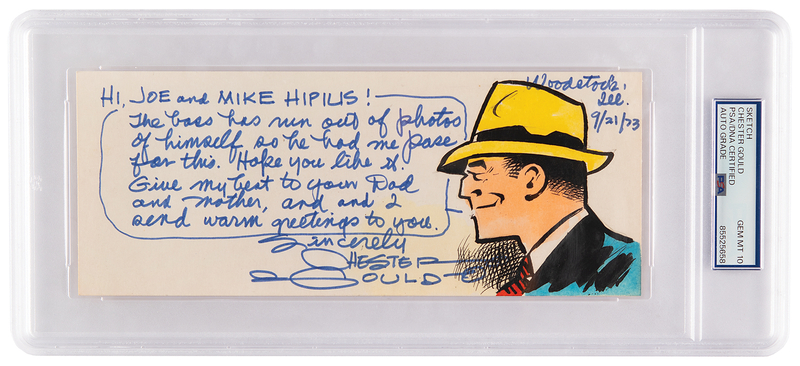 HI, JOE and MIKE HIPILIS!
The boss has run out of photos
of himself so he had me pose
for this. Hope you like it.
Give my best to your Dad
and mother, and and I
send warm greetings to you.
Sincerely
CHESTER
GOULD
Woodstock,
Ill.
9/21/73
SKETCH
CHESTER GOULD
PSA/DNA CERTIFIED
AUTO GRADE
PSA
GEM MT 10
85525658